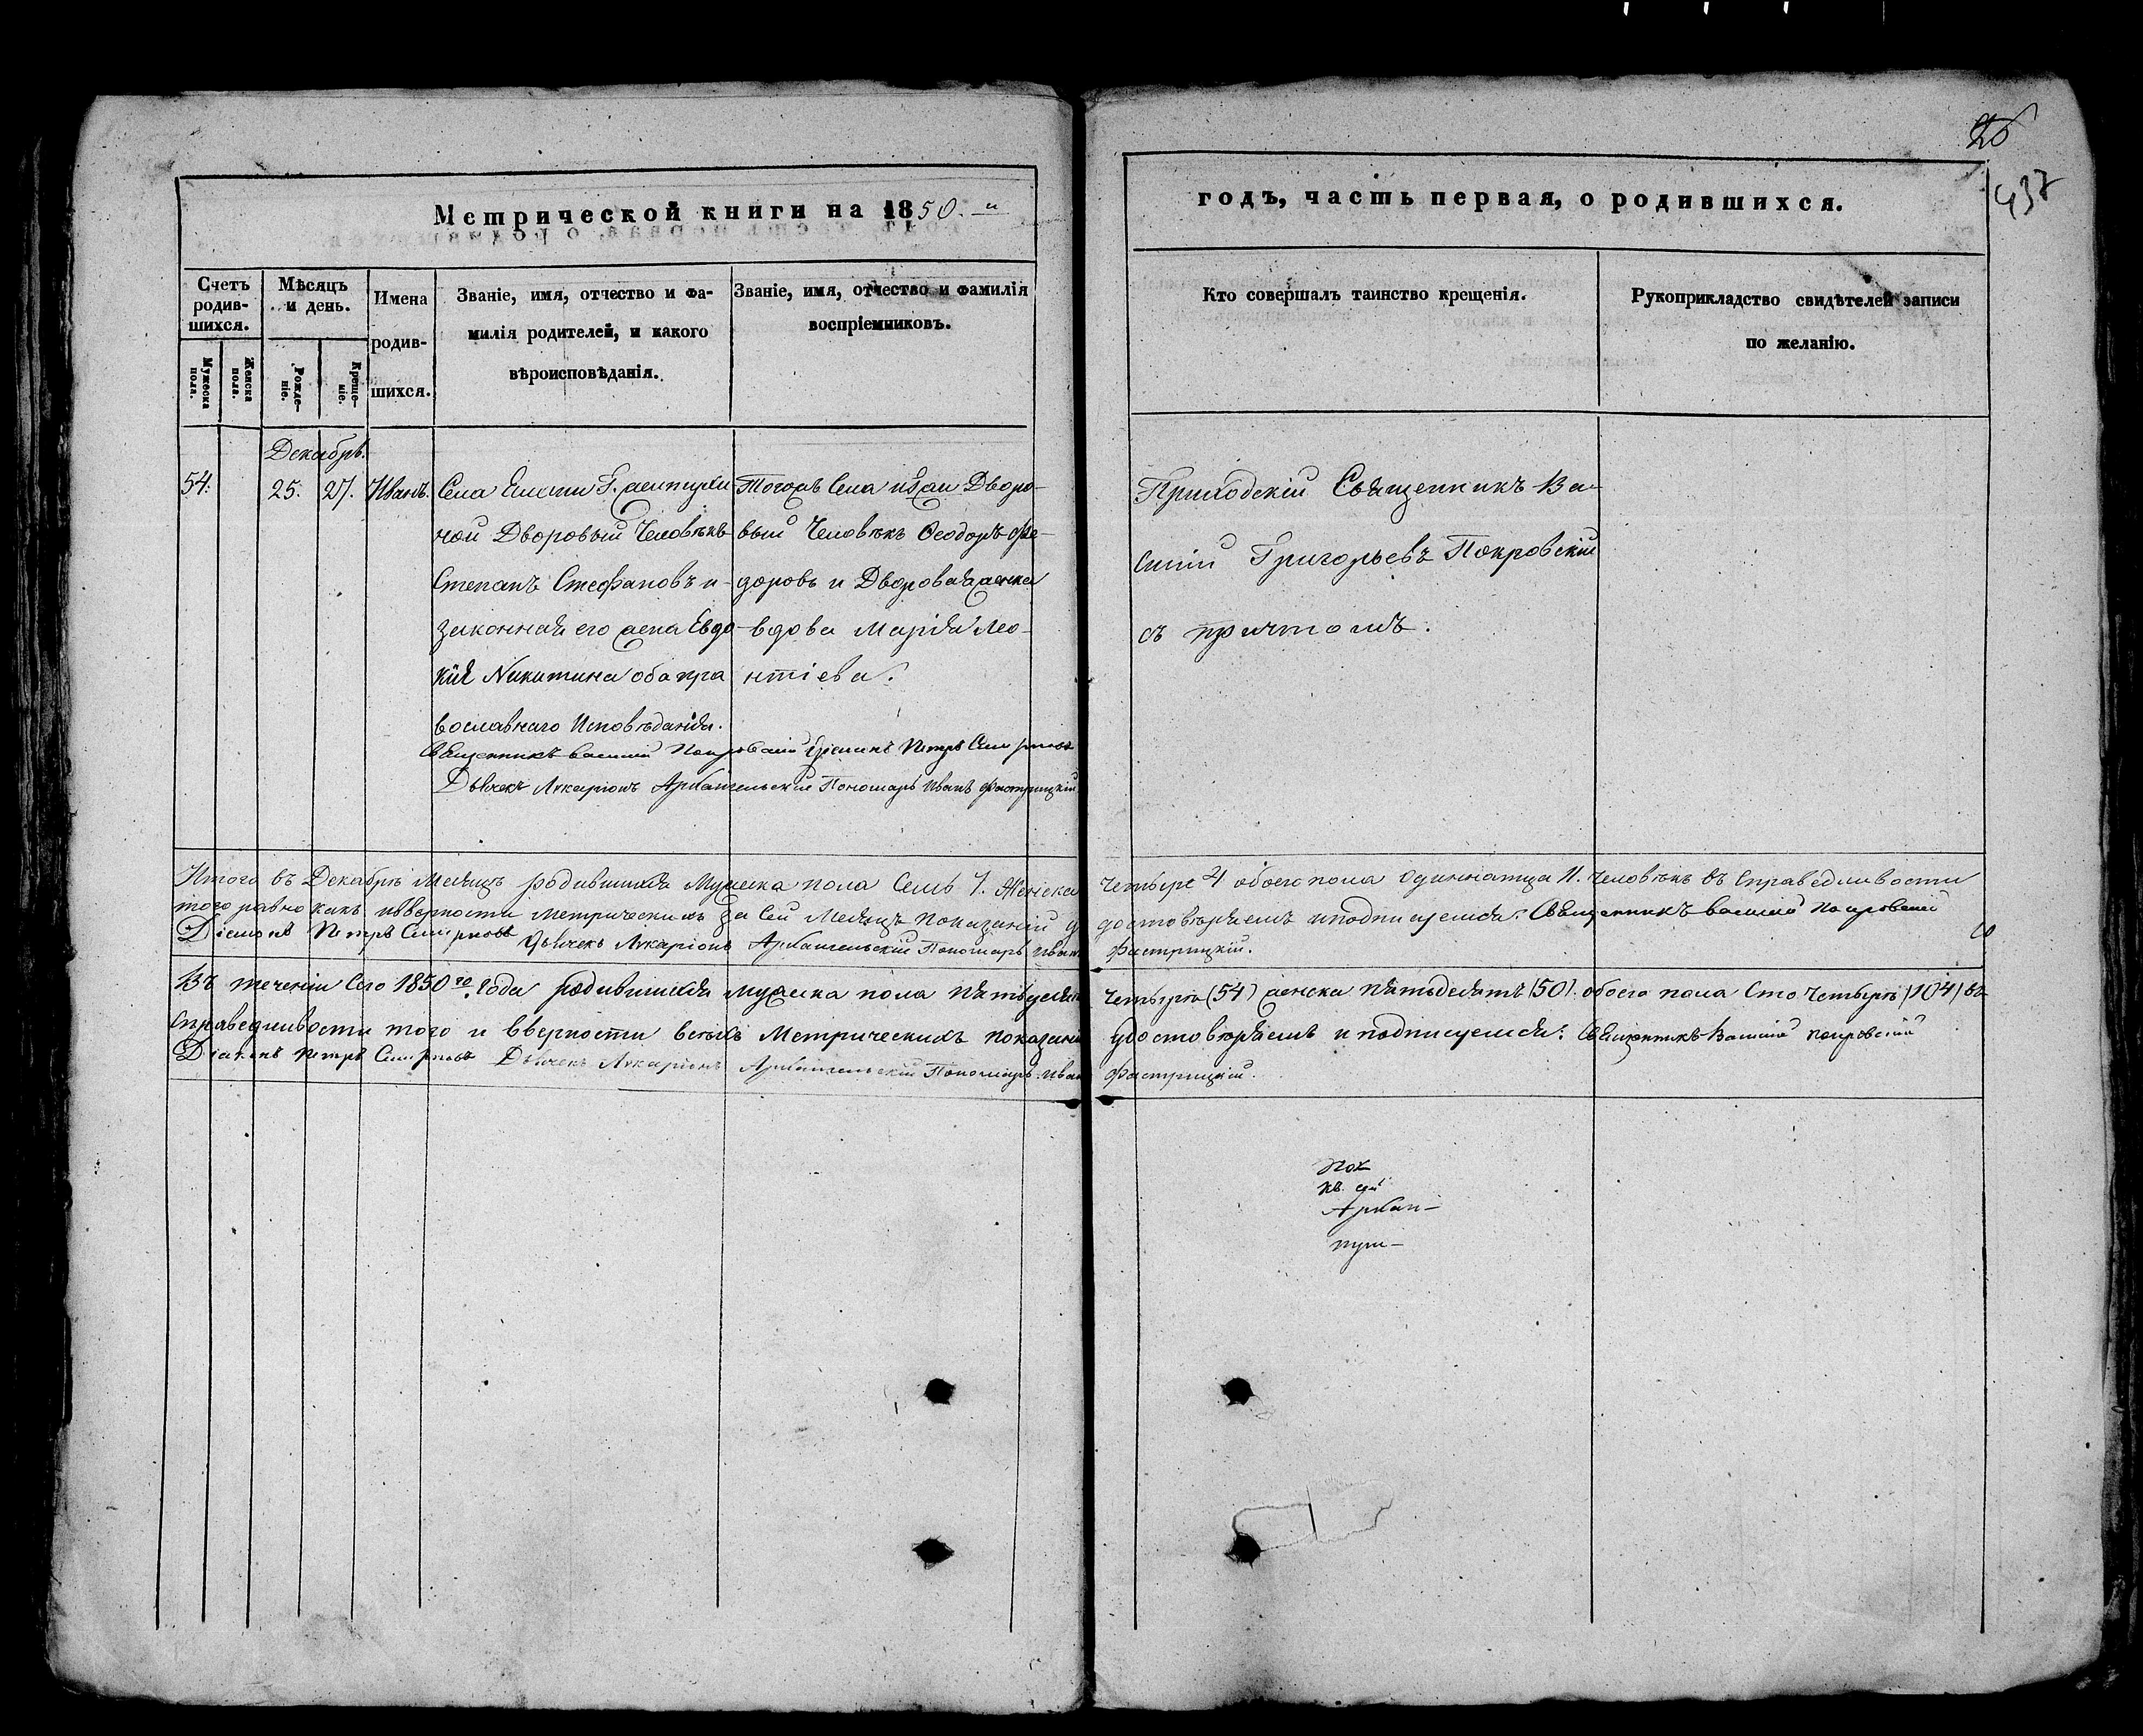 26
437
Метрической книги на 1850.
годъ, часть первая, о родившихся.
Счетъ родив-шихся.
Мѣсяцъ и день.
Имена родив-шихся.
Званіе, имя, отчество и фа-
милія родителей, и какого
вѣроисповѣданія.
Званіе, имя, отчество и фамилія
воспріемниковъ.
Мужеска пола.
Женска пола.
Рожде-ніе.
Креще-ніе.
Кто совершалъ таинство крещенія.
Рукоприкладство свидѣтелей записи
по желанію.
Декабрь.
54. 25. 27. Иванъ.
Села
ной Дворовый Человѣкъ
Степанъ Стефановъ и
законная его жена Евдо-
кія Никитина оба пра
вославнаго Исповѣданія.
Тогожъ Села Дворо-
вый Человѣкъ Ѳеодоръ Ѳе-
доровъ и Дворовая женка
вдова Марія Лео-
нтіева.
Приходскій Священникъ Ва-
силій Григорьевъ Покровскій
съ причтомъ.
Священникъ Василій Покровскій Діаконъ Петръ Смирновъ
Дьячекъ Иларіонъ Архангельскій Пономарь Иванъ
Итого въ Декабрѣ Месяцѣ родившихся Мужеска пола Семь 7. Женска четыре 4 обоего пола одиннатца 11. человѣкъ въ Справедливости
того равно какъ и вверности метрическихъ за Сей Месяцъ показаній у достовѣряемъ и подписуемся: Священникъ Василий Покровский
Діаконъ Петръ Смирновъ Дьячекъ Иларіонъ Архангельскій Пономарь Иванъ
Въ теченіи Сего 1850го Года родившихся мужеска пола пятьдесятъ четыре (54) женска пятьдесятъ (50). обоего пола Сто Четыре (104) въ
Справедливости того и вверности всѣхъ Метрическихъ показаній удостовѣряемъ и подписуемся: Священникъ Василій Покровскій
Діаконъ Петръ Смирновъ Дьячекъ Иларіонъ Архангельскій Пономарь Иванъ